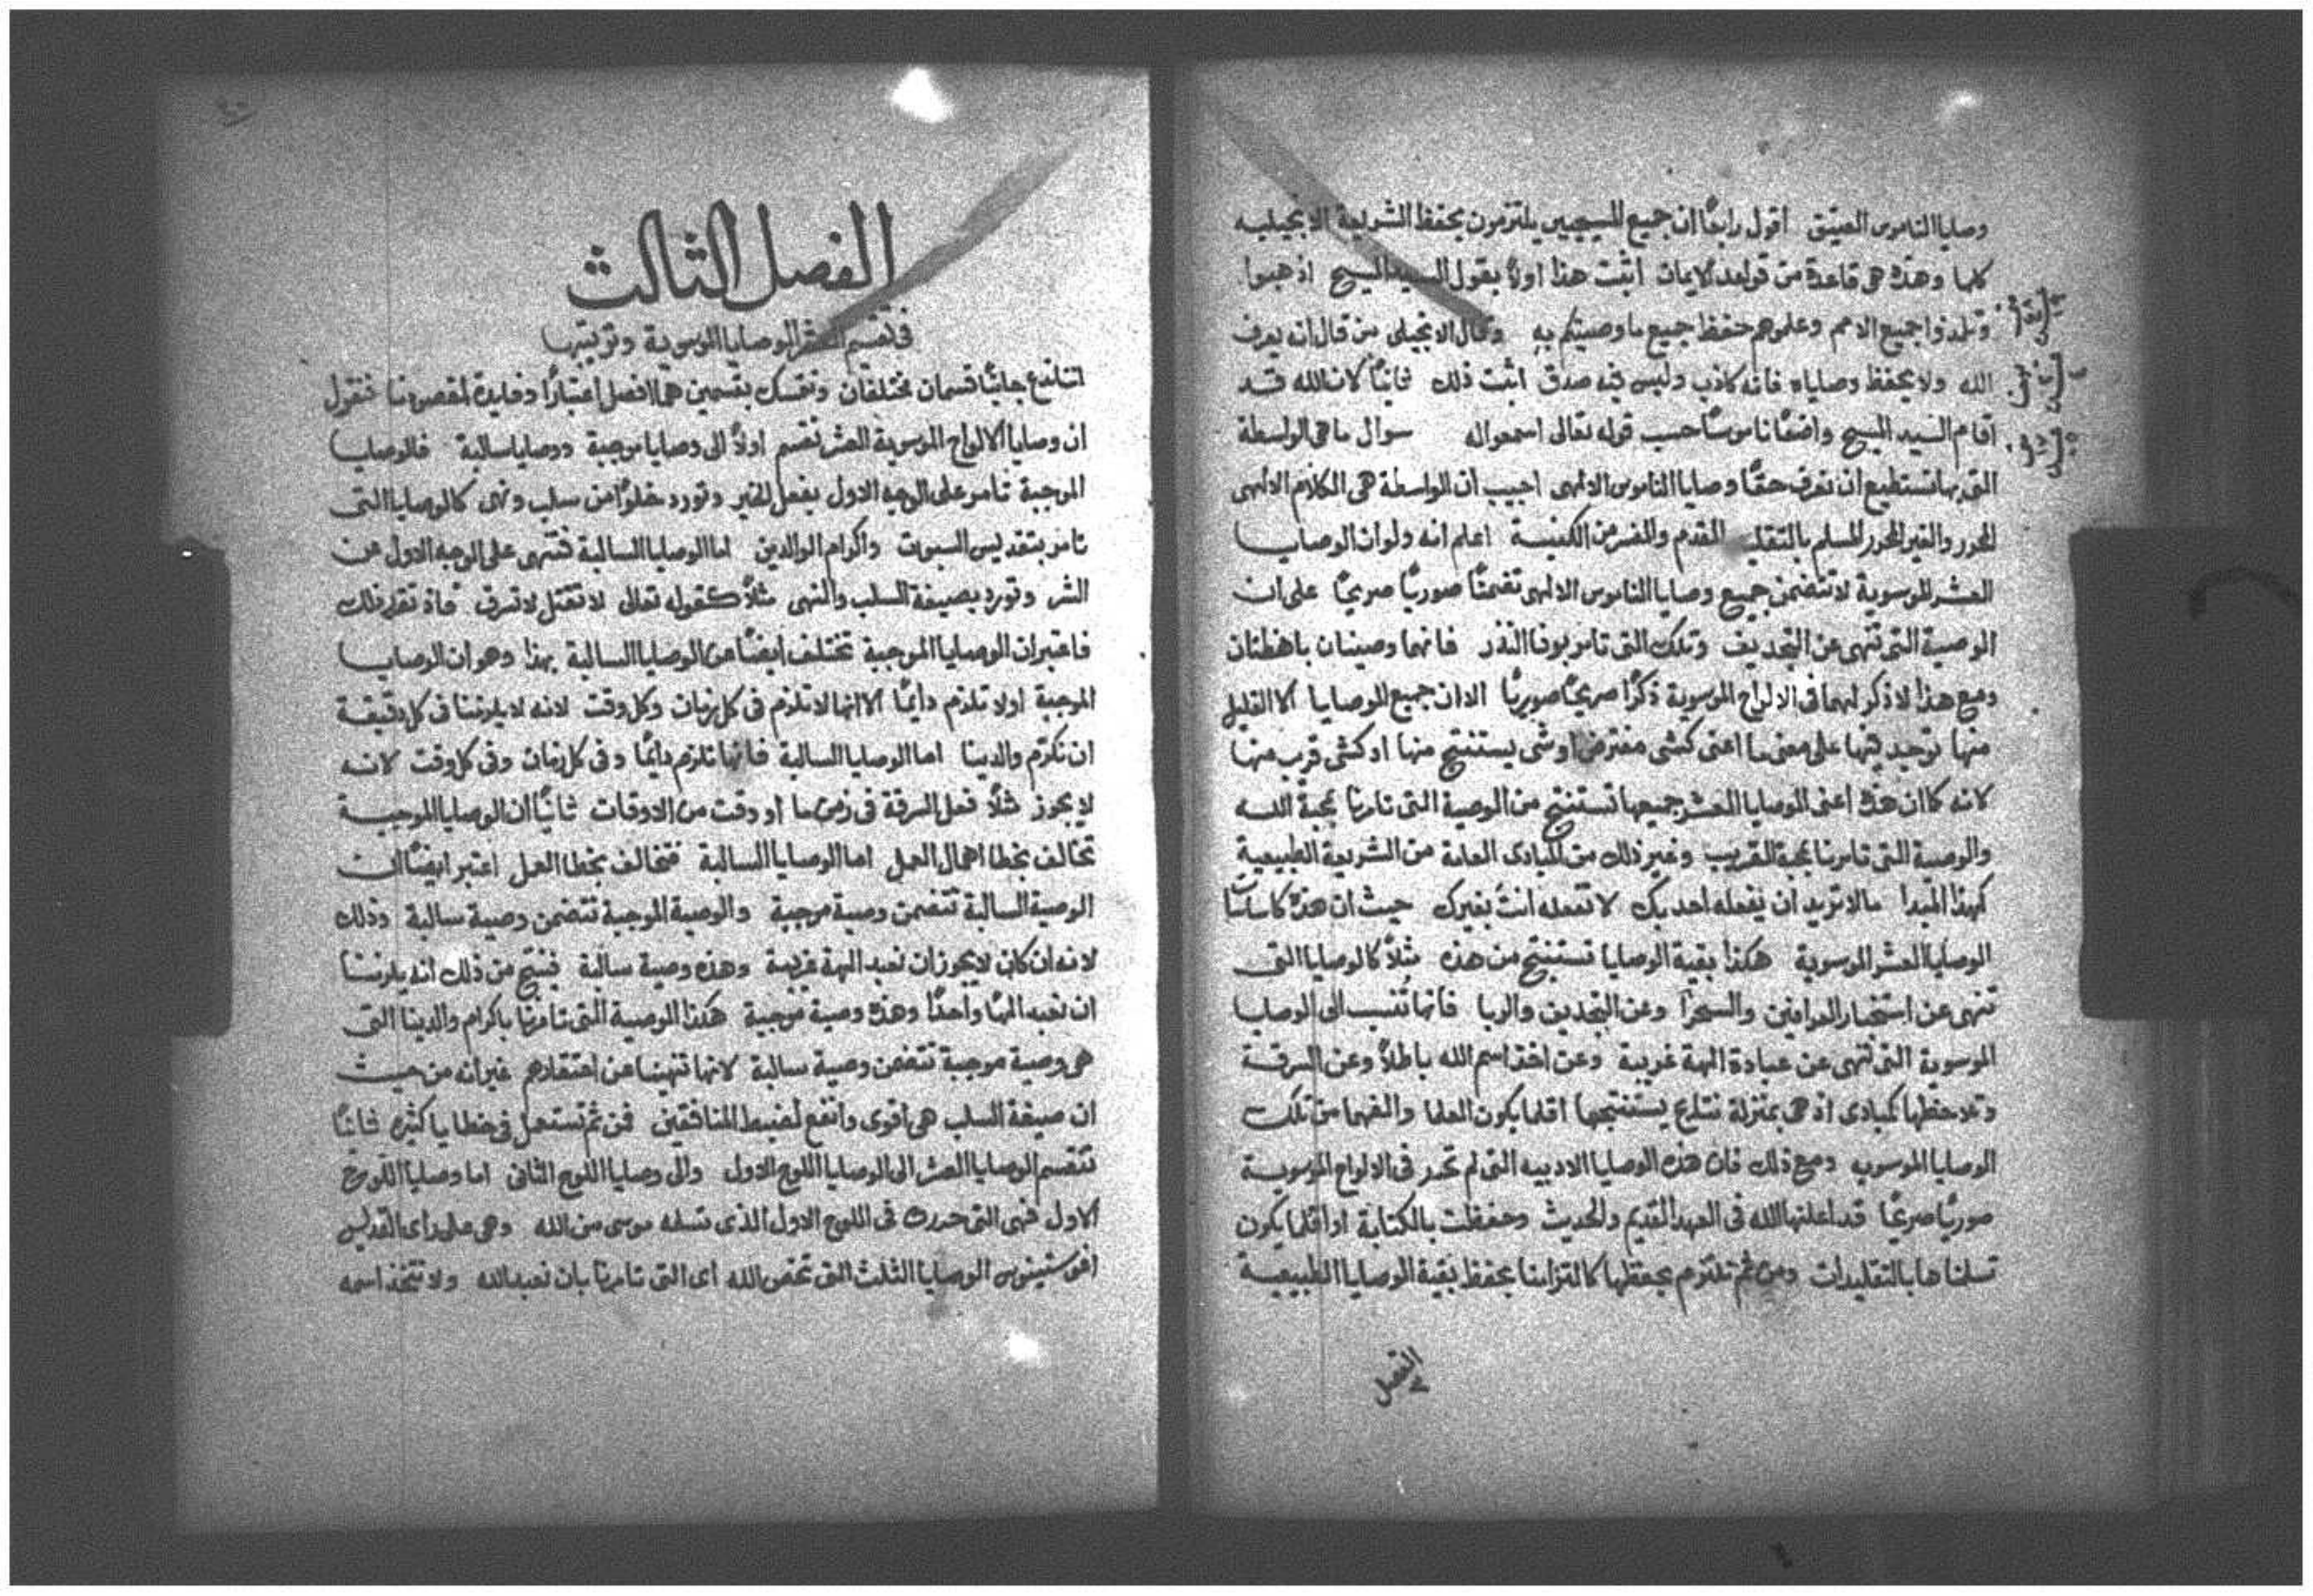 وصايا الناموس العتيق اقول رابعًا ان جميع المسيحيين يلتزمون بحفظ الشريعة الانجيليه
كلها وهذه هى قاعدة من قواعد الايمان اثبت هذا اولاً بقول السيد المسيح اذهبوا
وتلمذوا جميع الامم وعلموهم حفظ جميع ما وصيتكم به وقال الانجيلى من قال انه يعرف
الله ولا يحفظ وصاياه فانه كاذب وليس فيه صدق اثبت ذلك ثانيًا لان الله قد
اقام السيد المسيح واضعًا ناموسًا حسب قوله تعالى اسمعوا له سوال ما هى الواسطة
التى بها نستطيع ان نعرف حقًا وصايا الناموس الالهى اجيب ان الواسطة هى الكلام الالهى
المحرر والغير المحرر المسلم بالتقليد المقدم والمفسر من الكنيسة اعلم انه ولو ان الوصايا
العشر الموسوية لا تتضمن جميع وصايا الناموس الالهى تضمنًا صوريًا صريحًا على ان
الوصية التى تنهى عن التجديف وتلك التى تامر بوفا النذر فانهما وصيتان
ومع هذا لا ذكر لهما فى الالواح الموسوية ذكرًا صريحًا صوريًا الا ان جميع الوصايا الا القليل
منها توجد فيها على معنى ما اعنى كشى مفترض او شى يستنتج منها او كشى قرب منها
لانه كما ان هذه اعنى الوصايا العشر جميعها تستنتج من الوصية التى تامرنا بمحبة الله
والوصية التى تامرنا بمحبة القريب وغير ذلك من المبادى العامة من الشريعة الطبيعية
كهذا المبدا ما لا تريد ان يفعله احد بك لا تفعله انت بغيرك حيث ان هذه كاساسات
الوصايا العشر الموسوية هكذا بقية الوصايا تستنتج من هذه مثلاً كالوصايا التى
تنهى عن استخبار العرافين والسحرا وعن التجديف والربا فانها تُنسب الى الوصايا
الموسوية التى تنهى عن عبادة الهة غريبة وعن اخذ اسم الله باطلاً وعن السرقة
حفظها كمبادى اذ هى بمنزلة نتايج يستنتجها اقلما يكون العلما والفهما من تلك
الوصايا الموسويه ومع ذلك فان هذه الوصايا الادبيه التى لم تحرر فى الالواح الموسوية
صوريًا صريحًا قد اعلنها الله فى العهد القديم والحديث وحفظت بالكتابة او اقلما يكون
تسلمناها بالتقليدات ومن ثم نلتزم بحفظها كالتزامنا بحفظ بقية الوصايا الطبيعية
الفصل
الفصل الثالث
فى تقسيم العشر الوصايا الموسوية وترتيبها
اننا ندع جانبًا قسمان مختلفان ونتمسك بقسمين هما افضل اعتبارًا وفايدة لمقصودنا فنقول
ان وصايا الالواح الموسوية العشر تقسم اولاً الى وصايا موجبة ووصايا سالبة فالوصايا
الموجبة تامر على الوجه الاول بفعل الخير وتورد خلوًا من سلب ونهى كالوصايا التى
تامر بتقديس السبوت واكرام الوالدين اما الوصايا السالبة فتنهى على الوجه الاول عن
الشر وتورد بصيغة السلب والنهى مثلاً كقوله تعالى لا تقتل لا تسرق فاذ تقرر ذلك
فاعتبر ان الوصايا الموجبة تختلف ايضًا من الوصايا السالبة بهذا وهو ان الوصايا
الموجبة اولا تلزم دايمًا الا انها لا تلزم فى كل زمان وكل وقت لانه لا يلزمنا فى كل دقيقة
ان نكرم والدينا اما الوصايا السالبة فانها تلزم دايمًا وفى كل زمان وفى كل وقت لانه
لا يجوز مثلاً فعل السرقة فى زمن ما او وقت من الاوقات ثانيًا ان الوصايا الموجبة
تخالف بخطا اهمال العمل اما الوصايا السالبة فتخالف بخطا العمل اعتبر ايضًا ان
الوصية السالبة تتضمن وصية موجبة والوصية الموجبة تتضمن وصية سالبة وذلك
لانه ان كان لا يجوز ان نعبد الهة غريبة وهذه وصية سالبة فينتج من ذلك انه يلزمنا
ان نعبد الهًا واحدًا وهذه وصية موجبة هكذا الوصية التى تامرنا باكرام والدينا التى
هى وصية موجبة تتضمن وصية سالبة لانها تنهينا عن احتقارهم غير انه من حيث
ان صيغة السلب هى اقوى وانفع لضبط المنافقين فمن ثم تستعمل فى خطايا كثيره ثانيًا
تنقسم الوصايا العشر الى الوصايا اللوح الاول والى وصايا اللوح الثانى اما وصايا اللوح
الاول فهى التى حررت فى اللوح الاول الذى تسلمه موسى من الله وهى على راى القديس
اغوستينوس الوصايا الثلث التى تخص الله اى التى تامرنا بان نعبد الله ولا نتخذ اسمه